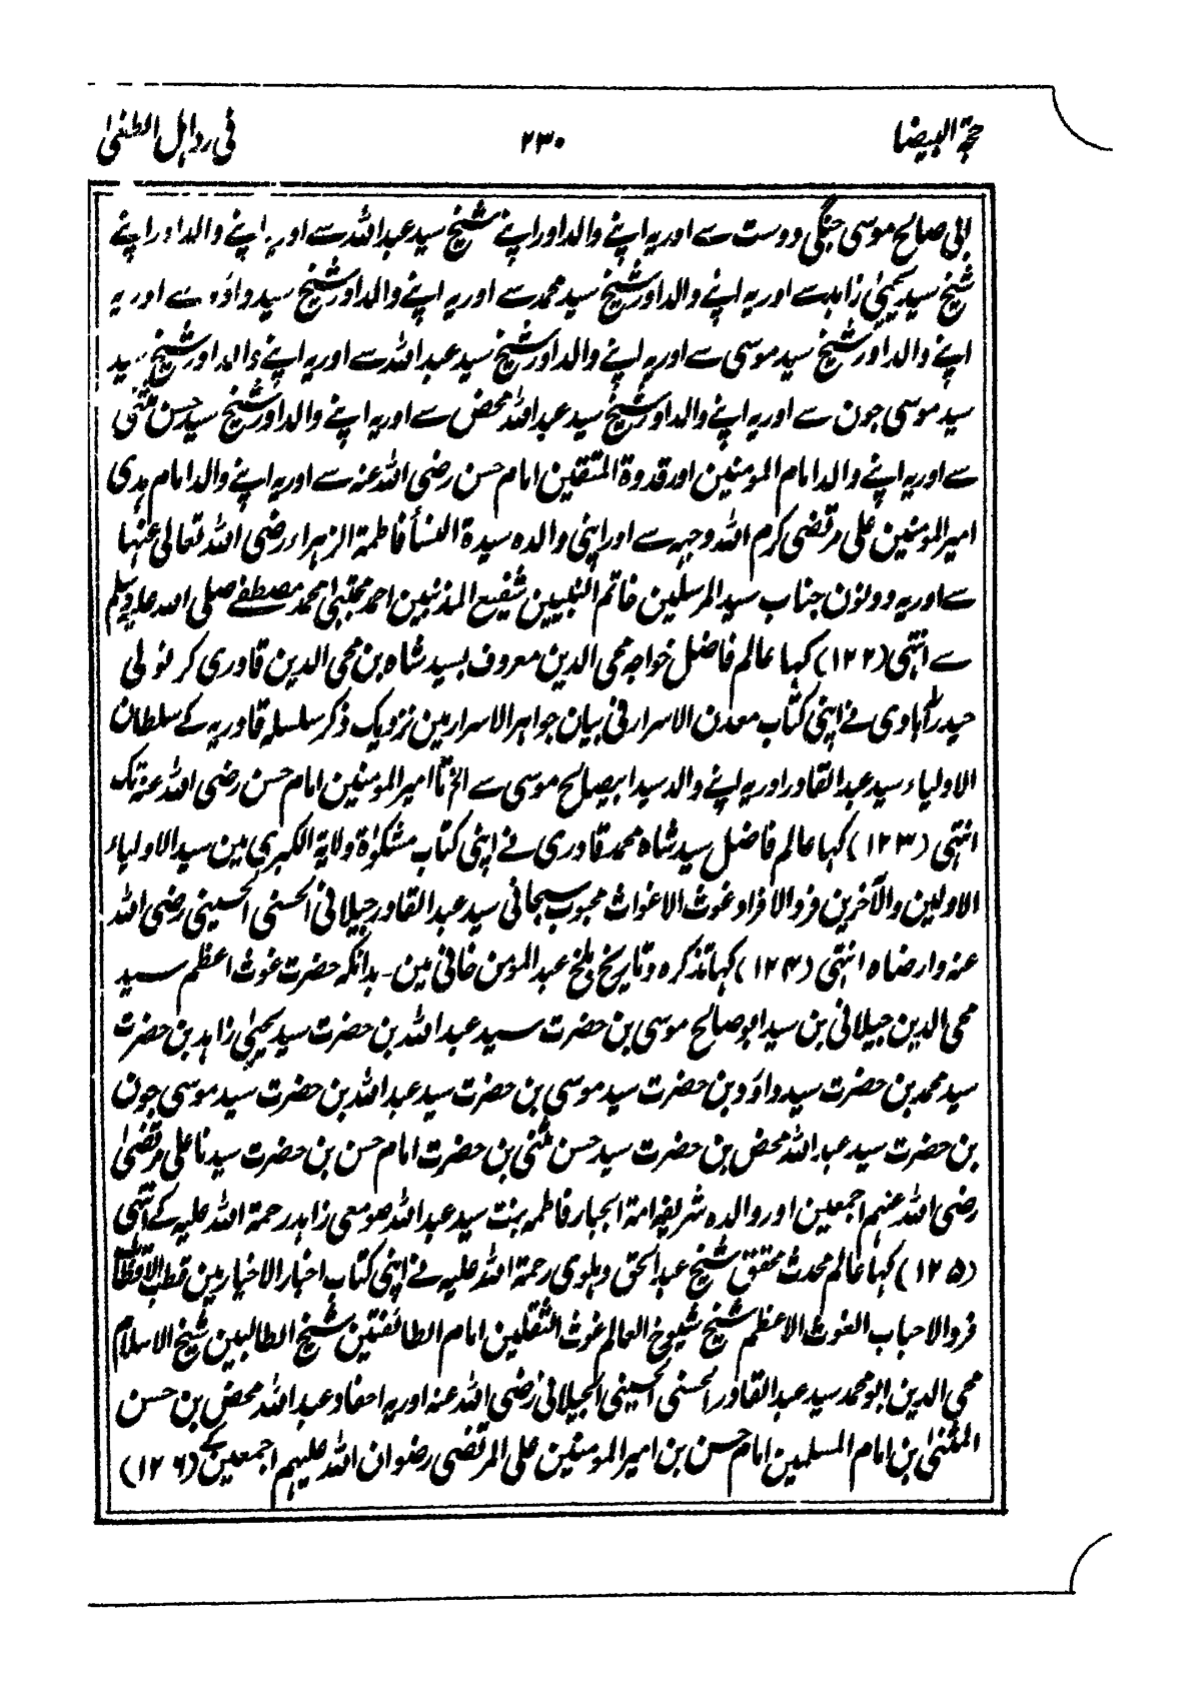 حجۃ البیضا ۲۳۰ فی ردا ہل الطغیٰ
ابی صالح موسی جنگی دوست سے اور یہ اپنے والد اور اپنے شیخ سید عبداللہ سے اور یہ اپنے والد اور اپنے
شیخ سید یحییٰ زاہد سے اور یہ اپنے والد اور شیخ سید محمد سے اور یہ اپنے والد اور شیخ سید داؤد سے اور یہ
اپنے والد اور شیخ سید موسی سے اور یہ اپنے والد اور شیخ سید عبداللہ سے اور یہ اپنے والد اور شیخ سید
سید موسی جون سے اور یہ اپنے والد اور شیخ سید عبداللہ محض سے اور یہ اپنے والد اور شیخ سید حسن مثنی
سے اور یہ اپنے والد امام المومنین اور قدوۃ المتقین امام حسن رضی اللہ عنہ سے اور یہ اپنے والد امام ہدی
امیر المومنین علی مرتضی کرم اللہ وجہہ سے اور اپنی والدہ سیدۃ النسأ فاطمۃ الزہراء رضی اللہ تعالی عنہا
سے اور یہ دونون جناب سید المرسلین خاتم النبیین شفیع المذنبین احمد مجتبی محمد مصطفے صلی اللہ علیہ وسلم
سے انتہی (۱۲۲) کہا عالم فاضل خواجہ محی الدین معروف بسید شاہ بن محی الدین قادری کرنولی
حیدرآبادی نے اپنی کتاب معدن الاسرار فی بیان جواہر الاسرار مین نزدیک ذکر سلسلہ قادریہ کے سلطان
الاولیاء سید عبد القادر اور یہ اپنے والد سید ابیصالح موسی سے الخ تا امیر المومنین امام حسن رضی اللہ عنہ تک
انتہی (۱۲۳) کہا عالم فاضل سید شاہ محمد قادری نے اپنی کتاب مشکوٰۃ ولایۃ الکبری مین سید الاولیاء
الاولین والآخرین فرد الافراد غوث الاغواث محبوب سبحانی سید عبد القادر جیلانی الحسنی الحسینی رضی اللہ
عنہ وارضاہ انتہی (۱۲۴) کہا تذکرہ و تاریخ بلخ عبد المومن خانی مین۔ بدانکہ حضرت غوث اعظم سید
محی الدین جیلانی بن سید ابو صالح موسی بن حضرت سید عبد اللہ بن حضرت سید یحییٰ زاہد بن حضرت
سید محمد بن حضرت سید داؤد بن حضرت سید موسی بن حضرت سید عبد اللہ بن حضرت سید موسی جون
بن حضرت سید عبد اللہ محض بن حضرت سید حسن مثنی بن حضرت امام حسن بن حضرت سیدنا علی مرتضیٰ
رضی اللہ عنہم اجمعین اور والدہ شریفہ امۃ الجبار فاطمہ بنت سید عبد اللہ صومعی زاہد رحمۃ اللہ علیہ کے انتہی
(۱۲۵) کہا عالم محدث محقق شیخ عبد الحق دہلوی رحمۃ اللہ علیہ نے اپنی کتاب اخبار الاخیار مین قطب الاقطاب
فرد الاحباب الغوث الاعظم شیخ شیوخ العالم غوث الثقلین امام الطائفتین شیخ الطالبین شیخ الاسلام
محی الدین ابو محمد سید عبد القادر الحسنی الحسینی الجیلانی رضی اللہ عنہ اور یہ احفاد عبد اللہ محض بن حسن
المثنیٰ بن امام المسلمین امام حسن بن امیر المومنین علی المرتضی رضوان اللہ علیہم اجمعین کے (۱۲۶)